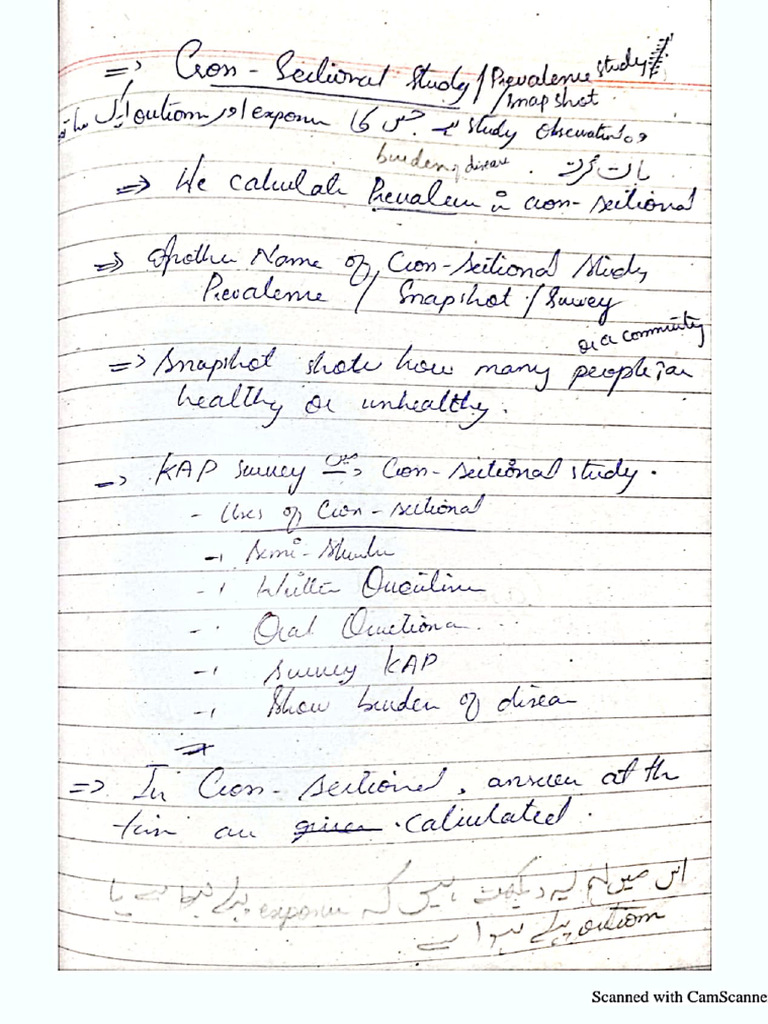 => Cross-Sectional Study/Prevalence study
/snapshot
وہ observational study ہے جس کا exposure اور outcome ایک ساتھ
burden of disease
=> We calculate Prevalence in cross-sectional
=> Another Name of Cross-Sectional Study
Prevalence / Snapshot / Survey
or a community
=> Snapshot how many people
healthy or unhealthy.
-> KAP survey میں => Cross-Sectional study.
- Uses of Cross-sectional
- Semi-
- Written
- Oral
- Survey KAP
- Show burden of disease
=> In Cross-sectional, answer at the
time are given calculated.
اس میں ہم یہ دیکھتے ہیں کہ exposure پہلے ہے یا
outcome پہلے ہوا ہے
Scanned with CamScanne